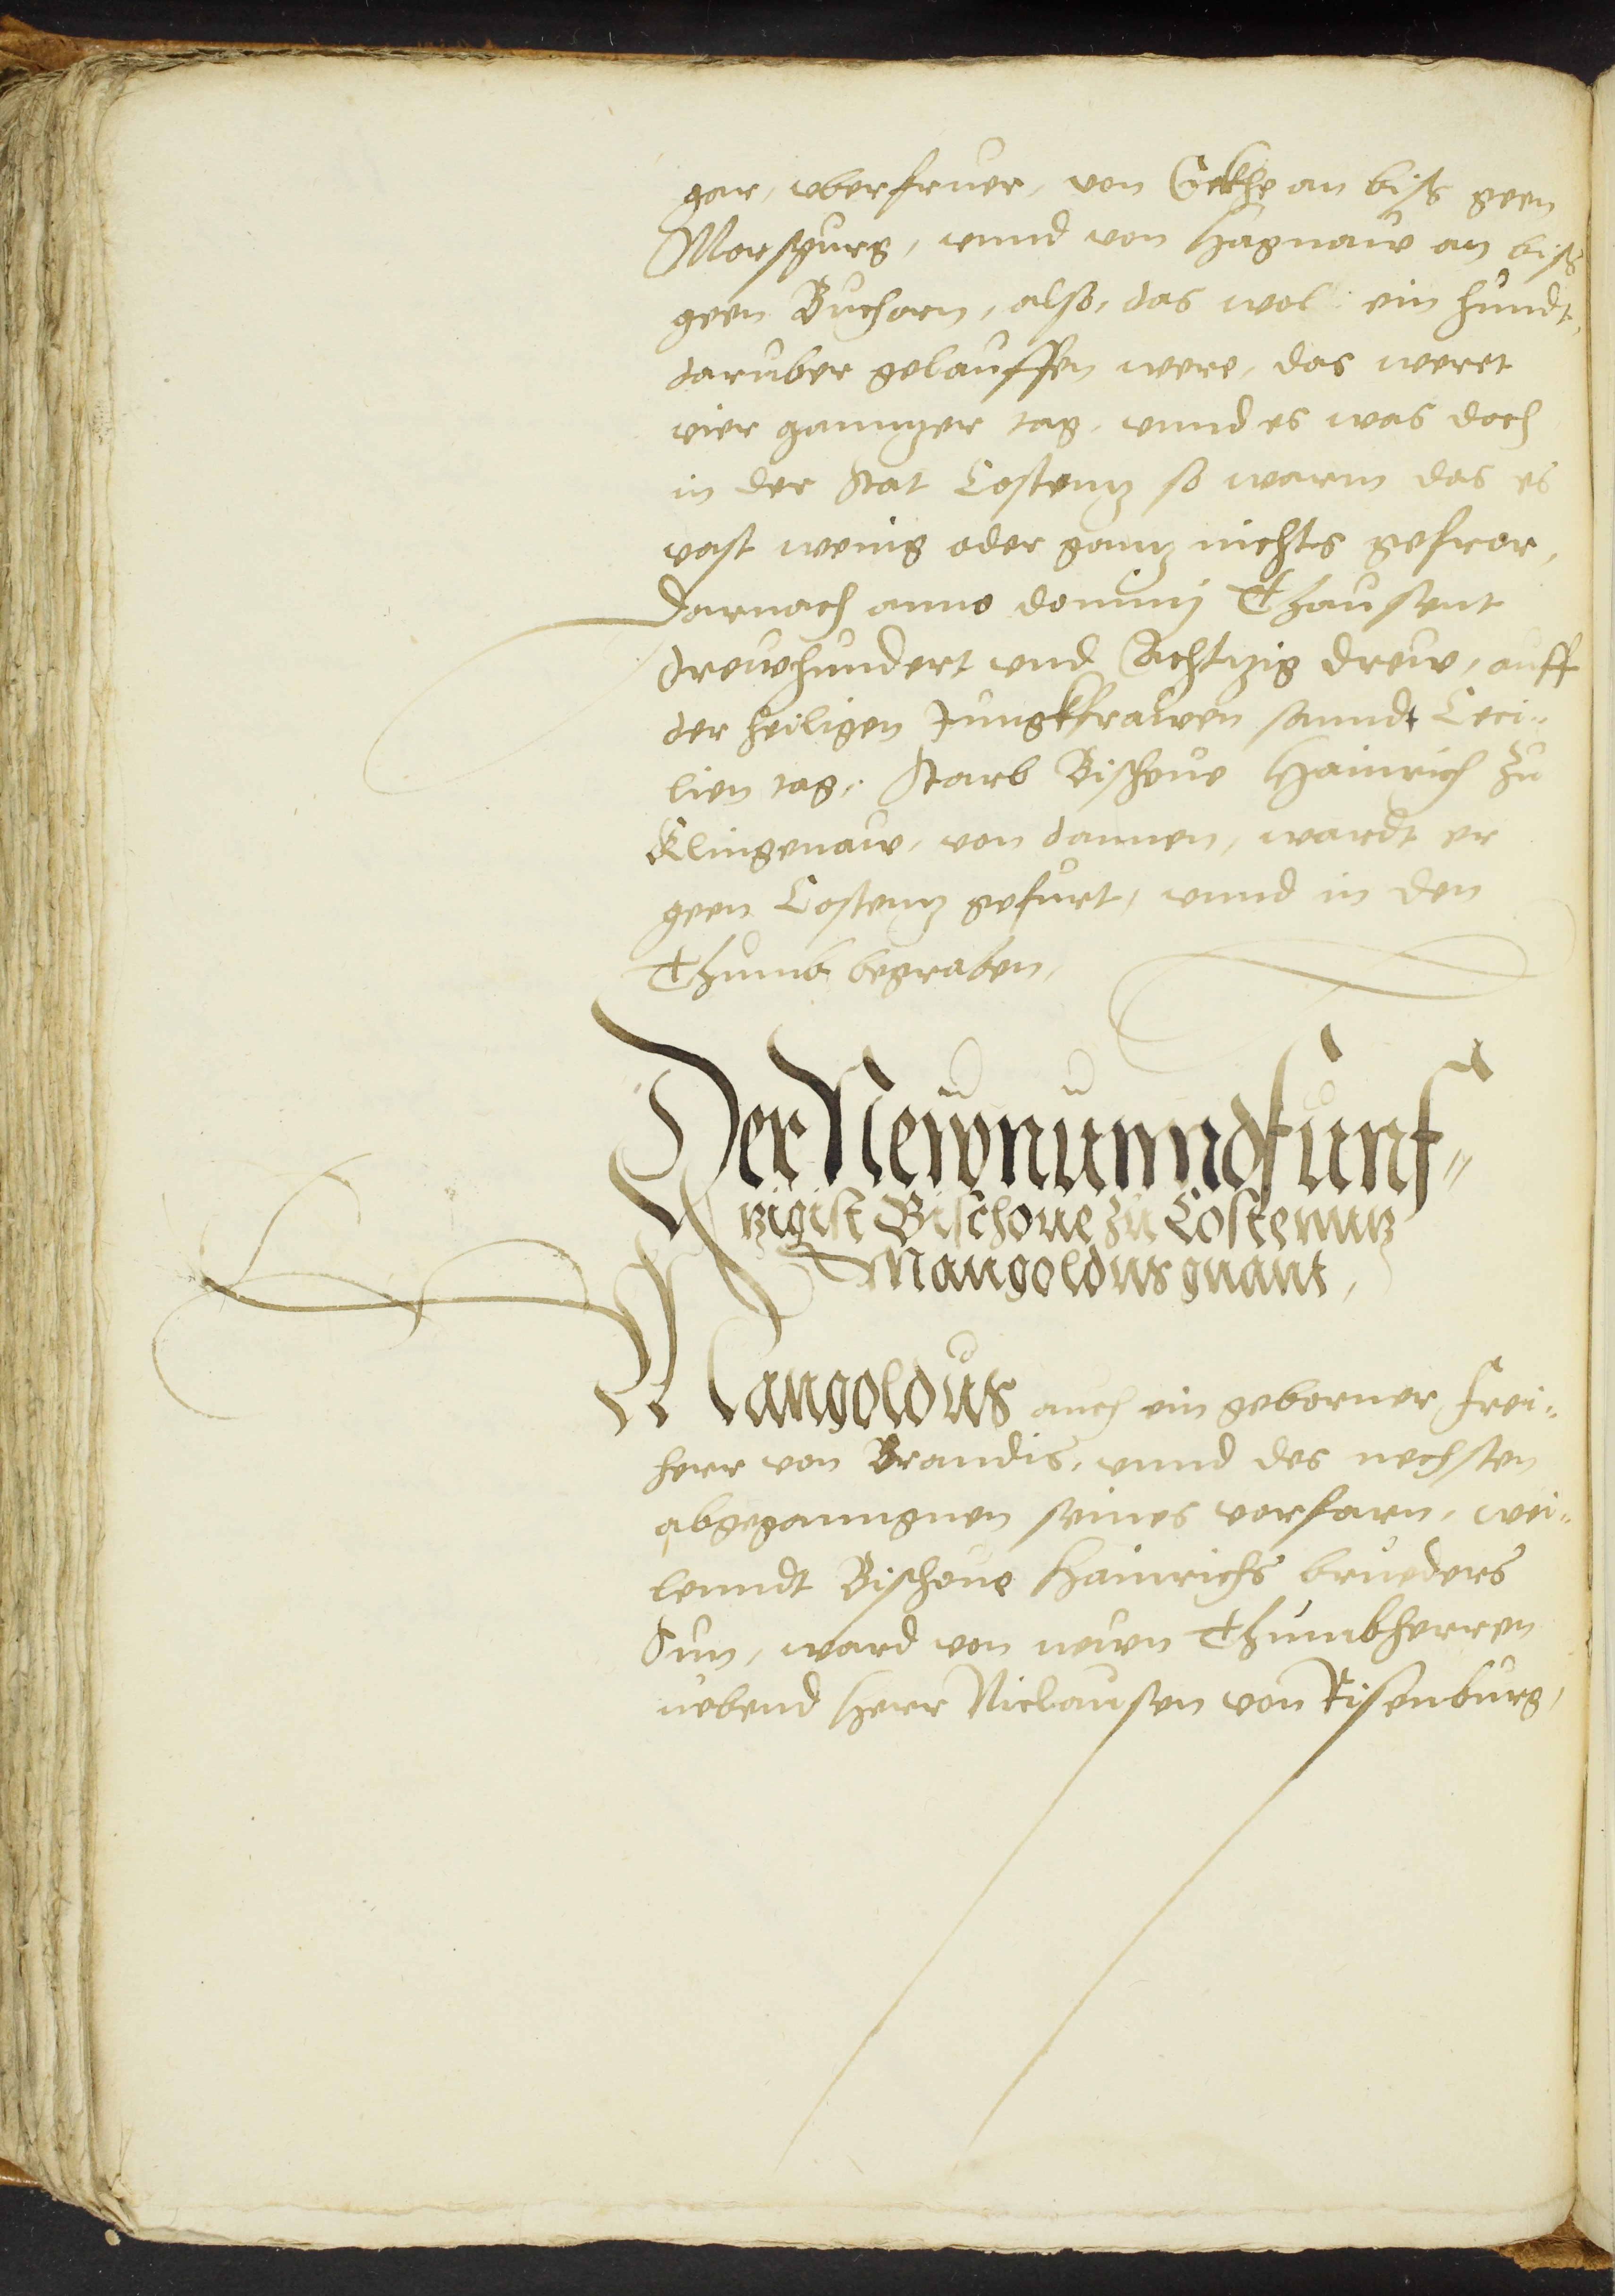 gar, uberfruer, von Eckhe an biß geen
Morspurg, unnd von Hagnaw an biß
geen Buchorn, also, das wol ein hundt,
daruber gelauffen were, das weret
vier ganntzer tag, unnd es was doch
in der Stat Costentz so warm das es
vast wenig oder gantz nichts gefror,
Darnach anno dominj Thausent
drewhundert und Achtzig drew, auff
der heiligen Jungkfrawen sanndt Ceci„
lien tag, starb Bischoue Hainrich zu
Klingenaw, von dannen, wardt er
geen Costentz gefurt, unnd in den
Thumb begraben,
Der Newnunndfunf„
tzigist Bischoue zu Costenntz
Mangoldus gnant,
Mangoldus auch ein geborner Frei„
herr von Brandis, unnd des nechsten
abgeganngnen seines vorfarn, wei„
lenndt Bischoue Hainrichs brueders
Sun, ward von newn Thumbherren
nebend Herr Niclausen von Risenburg,